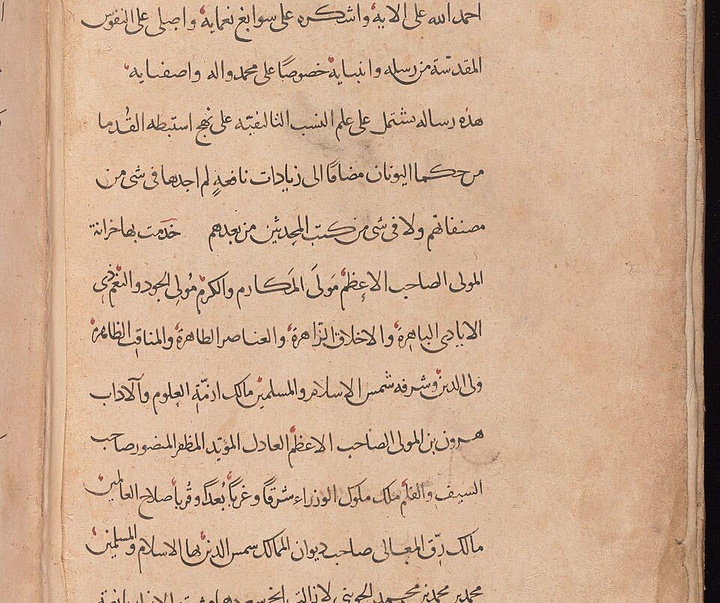 احمد الله على الايه واشكره على سوابغ نعمايه واصلى على النفوس
المقدسة من رسله وانبيايه خصوصًا على محمد واله واصفيايه
هذه رساله تشتمل على علم النسب التاليفيّه على نهج استنبطه القُدما
من حكما اليونان مضافًا الى زيادات نافعهٍ لم اجدها فى شى من
مصنفاتهم ولا فى شى من كتب المحدثين من بعدهم خدمت بها خزانة
المولى الصاحب الاعظم مَولَى المَكارم والكرم مُولِى الجود والنعم ذى
الايادى الباهرة والاخلاق الزاهرة والعناصر الطاهرة والمناقب الظاهرة
ولى الدين وشرفه شمس الاسلام والمسلمين مالك ازمّة العلوم والآداب
هرون بن المولى الصاحب الاعظم العادل المؤيّد المظفر المنصور صاحب
السيف والقلم ملك ملوك الوزراء شرقًا وغربًا بُعدًا وقُربًا صلاح العالمين
مالك رِقّ المعالى صاحب ديوان الممالك سمس الدين بها الاسلام والمسلمين
محمد بن محمد بن محمد الجوينى لا زالت